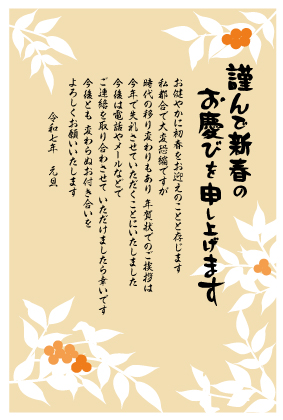 謹んで新春の
お慶びを申し上げます
お健やかに初春をお迎えのことと存じます
私都合で大変恐縮ですが
時代の移り変わりもあり 年賀状でのご挨拶は
今年で失礼させていただくことにいたしました
今後は電話やメールなどで
ご連絡を取り合わさせて いただけましたら幸いです
今後とも 変わらぬお付き合いを
よろしくお願いいたします
令和七年 元旦